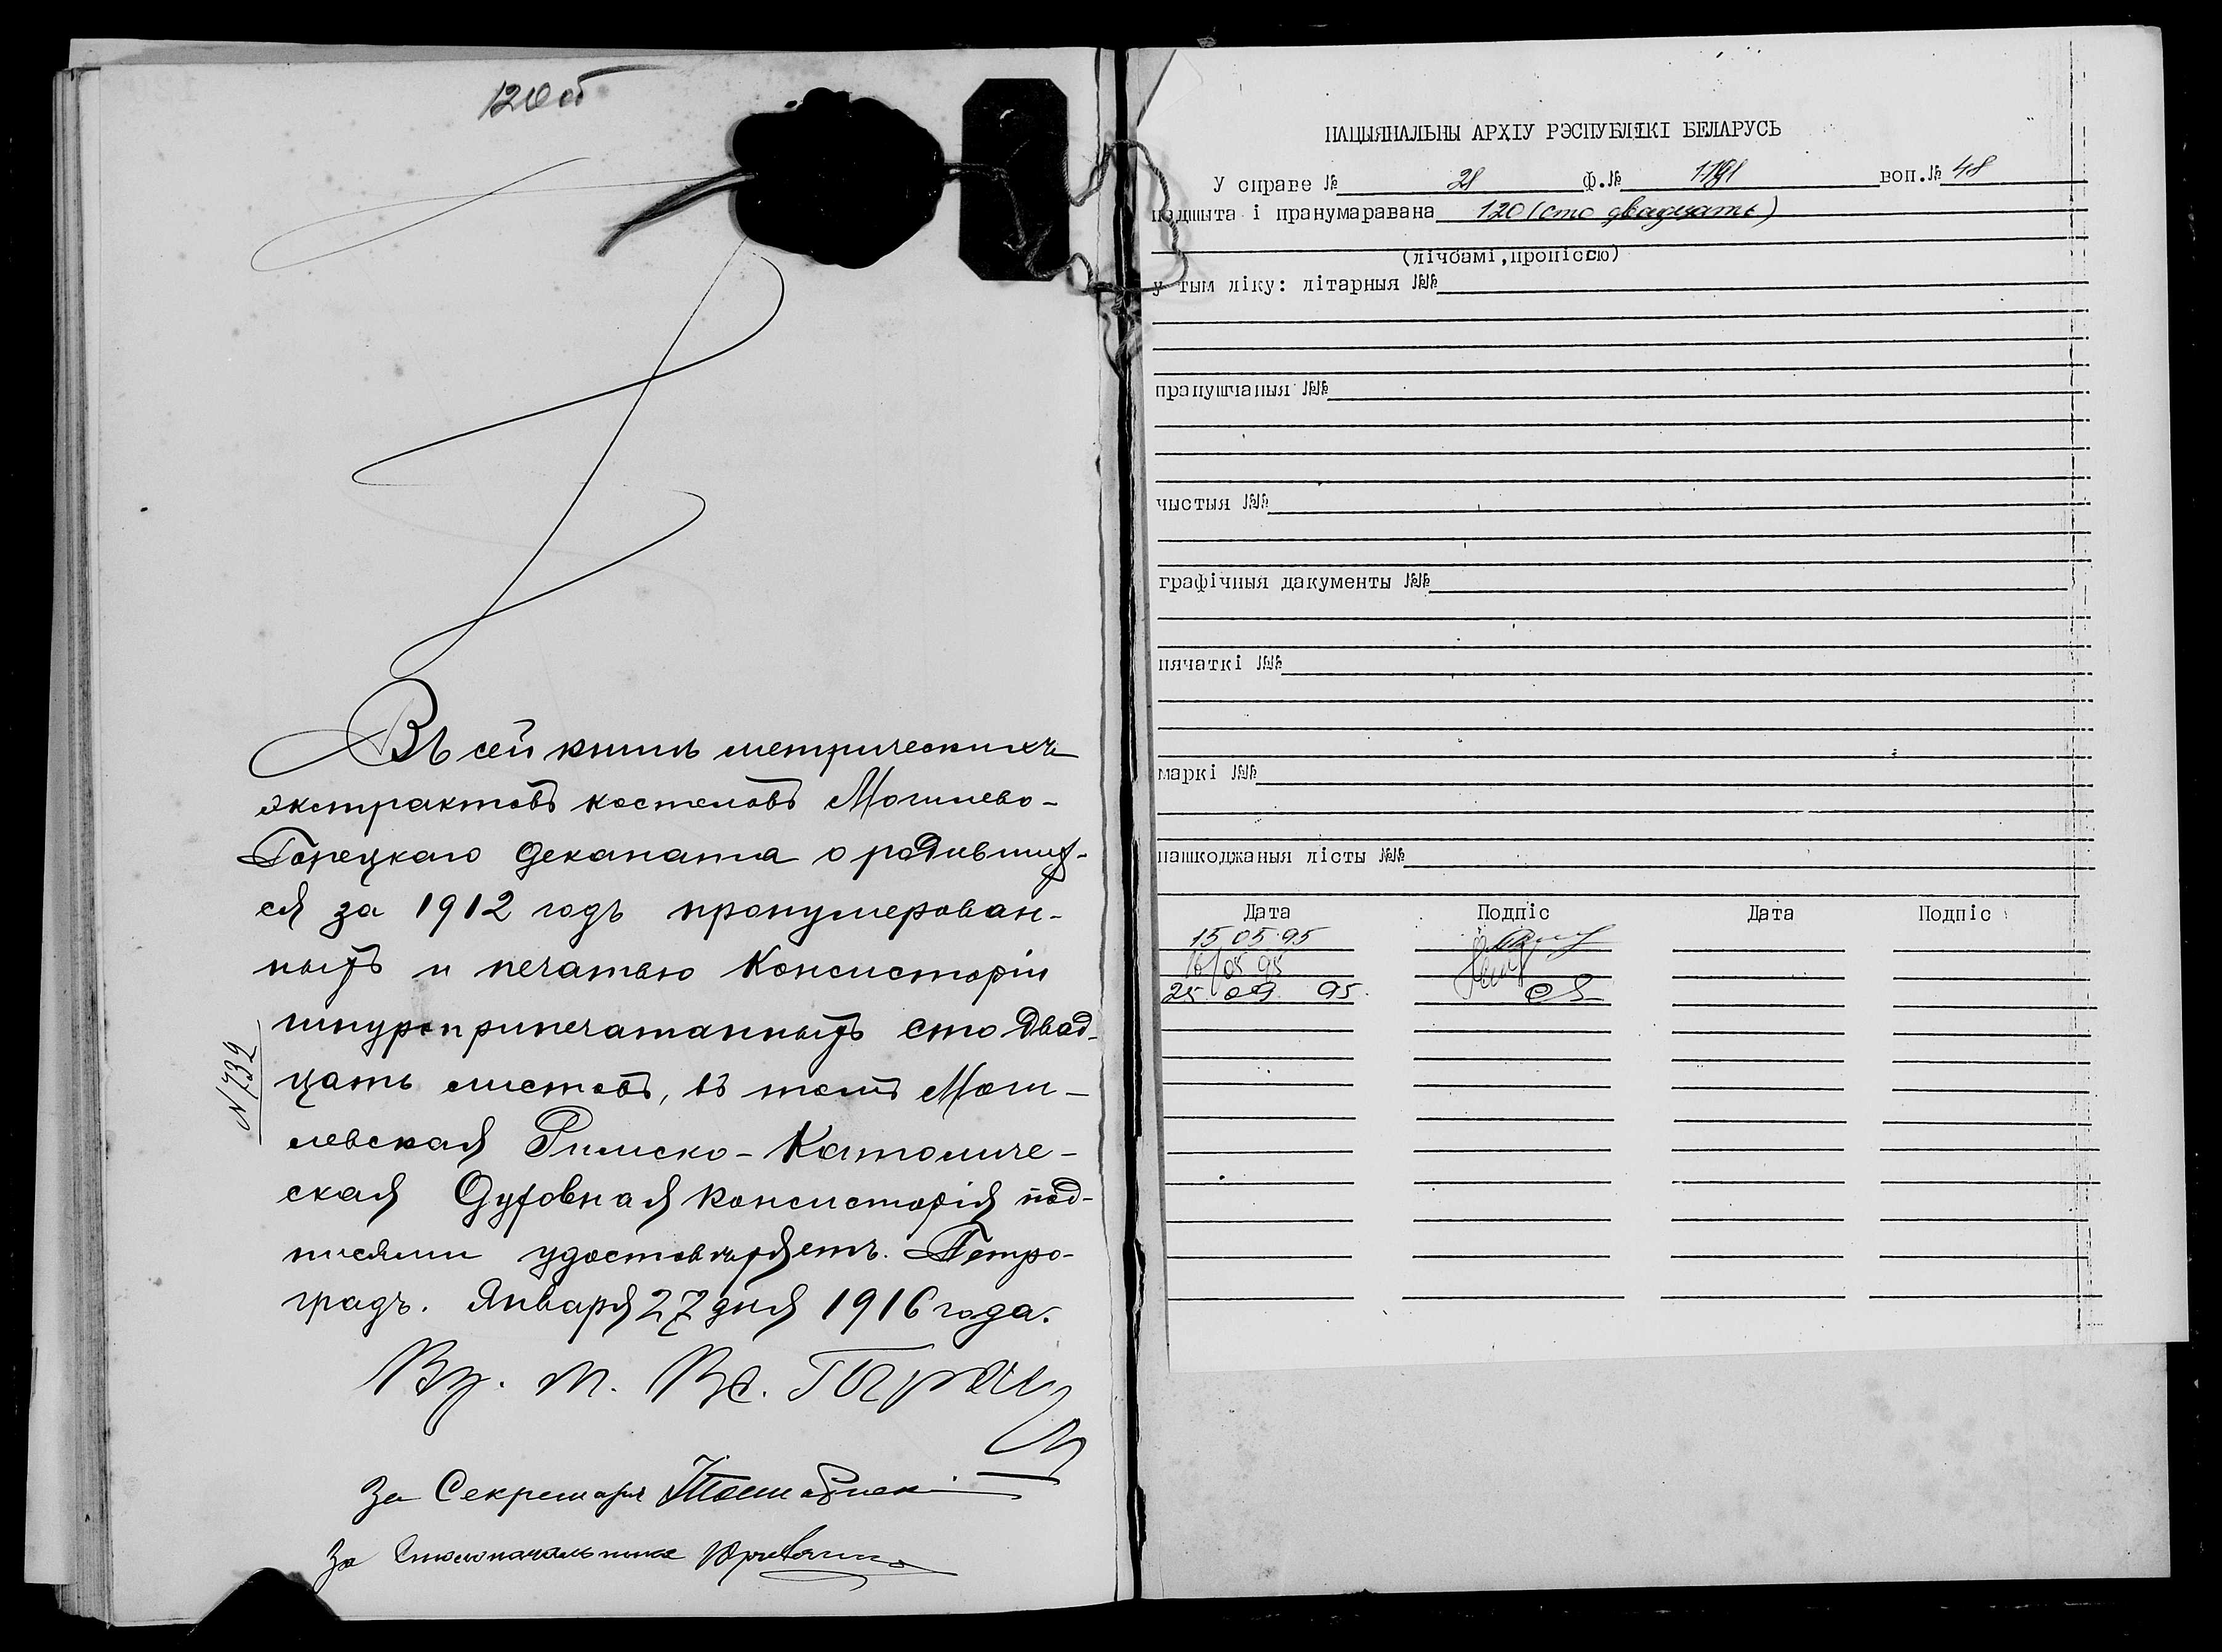 120 об
Въ сей книгѣ метрическихъ
экстрактовъ костеловъ Могилево-
Горецкаго деканата о родивших-
ся за 1912 годъ пронумерован-
ныхъ и печатью Консисторіи
шнуроприпечатанныхъ сто двад-
цать листовъ, въ томъ Моги-
левская Римско-Католиче-
ская Духовная Консисторія под-
писями удостовѣряетъ. Петро-
градъ. Января 27 дня 1916 года.
N 732
За Секретаря
За Столоначальника
НАЦЫЯНАЛЬНЫ АРХІУ РЭСПУБЛІКІ БЕЛАРУСЬ
У справе № 28 Ф.№ 1781 воп.№ 48
падшыта і пранумаравана 120 (сто двадцать)
(лічбамі, пропіссю)
у тым ліку: літарныя №№
прапушчаныя №№
чыстыя №№
графічныя дакументы №№
пячаткі №№
маркі №№
пашкоджаныя лісты №№
Дата Подпіс Дата Подпіс
15 05 95
16/05 95
25. 09. 95.